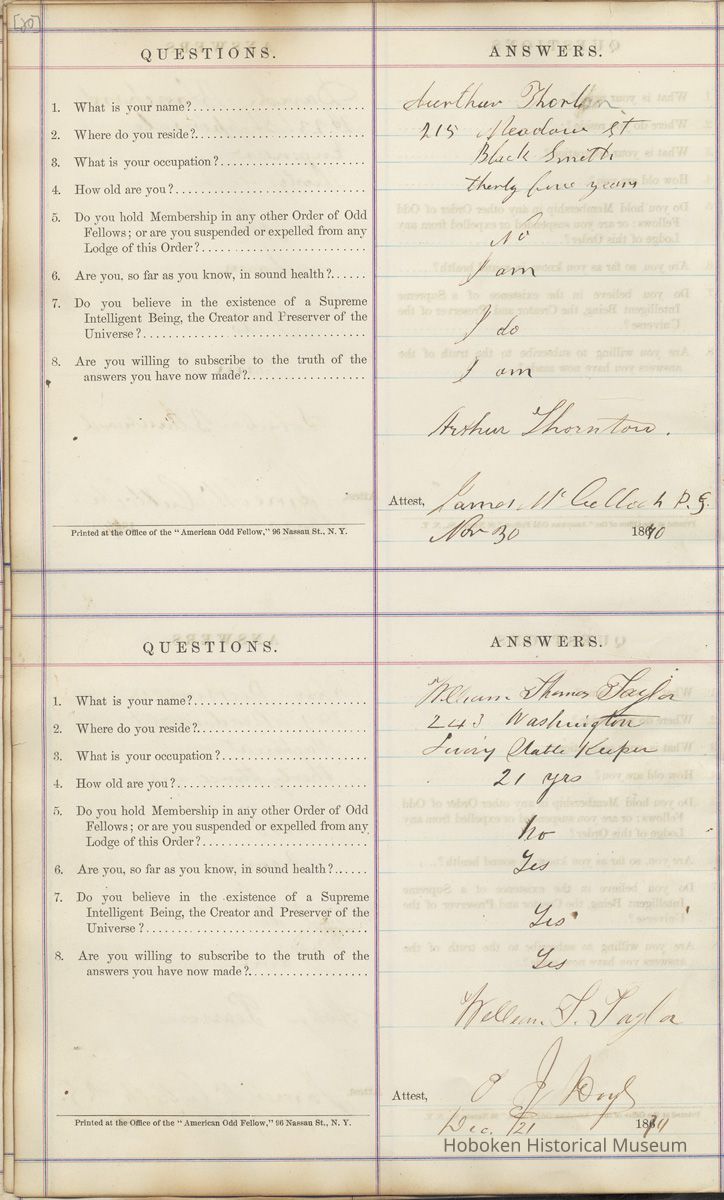 [20]
QUESTIONS.
ANSWERS.
1. What is your name?
Aurthur Thorton
2. Where do you reside?
215 Meadow St
3. What is your occupation?
Black Smith
4. How old are you?
therty five years
5. Do you hold Membership in any other Order of Odd
Fellows; or are you suspended or expelled from any
Lodge of this Order?
No
6. Are you, so far as you know, in sound health?
I am
7. Do you believe in the existence of a Supreme
Intelligent Being, the Creator and Preserver of the
Universe?
I do
8. Are you willing to subscribe to the truth of the
answers you have now made?
I am
Arthur Thornton.
Attest, James McCulloch P.G.
Printed at the Office of the "American Odd Fellow," 96 Nassau St., N. Y.
Nov 30 1870
QUESTIONS.
ANSWERS.
1. What is your name?
William Thomas Taylor
2. Where do you reside?
243 Washington
3. What is your occupation?
Livery Stable Keeper
4. How old are you?
21 yrs
5. Do you hold Membership in any other Order of Odd
Fellows; or are you suspended or expelled from any
Lodge of this Order?
No
6. Are you, so far as you know, in sound health?
Yes
7. Do you believe in the existence of a Supreme
Intelligent Being, the Creator and Preserver of the
Universe?
Yes
8. Are you willing to subscribe to the truth of the
answers you have now made?
Yes
William T. Taylor
Attest,
Printed at the Office of the "American Odd Fellow," 96 Nassau St., N. Y.
Dec. 21
Hoboken Historical Museum